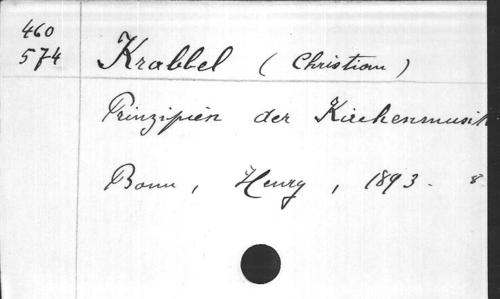 460
574
Krabbel (Christian)
Prinzipien der Kirchenmusik
Bonn, Henry, 1893. 8